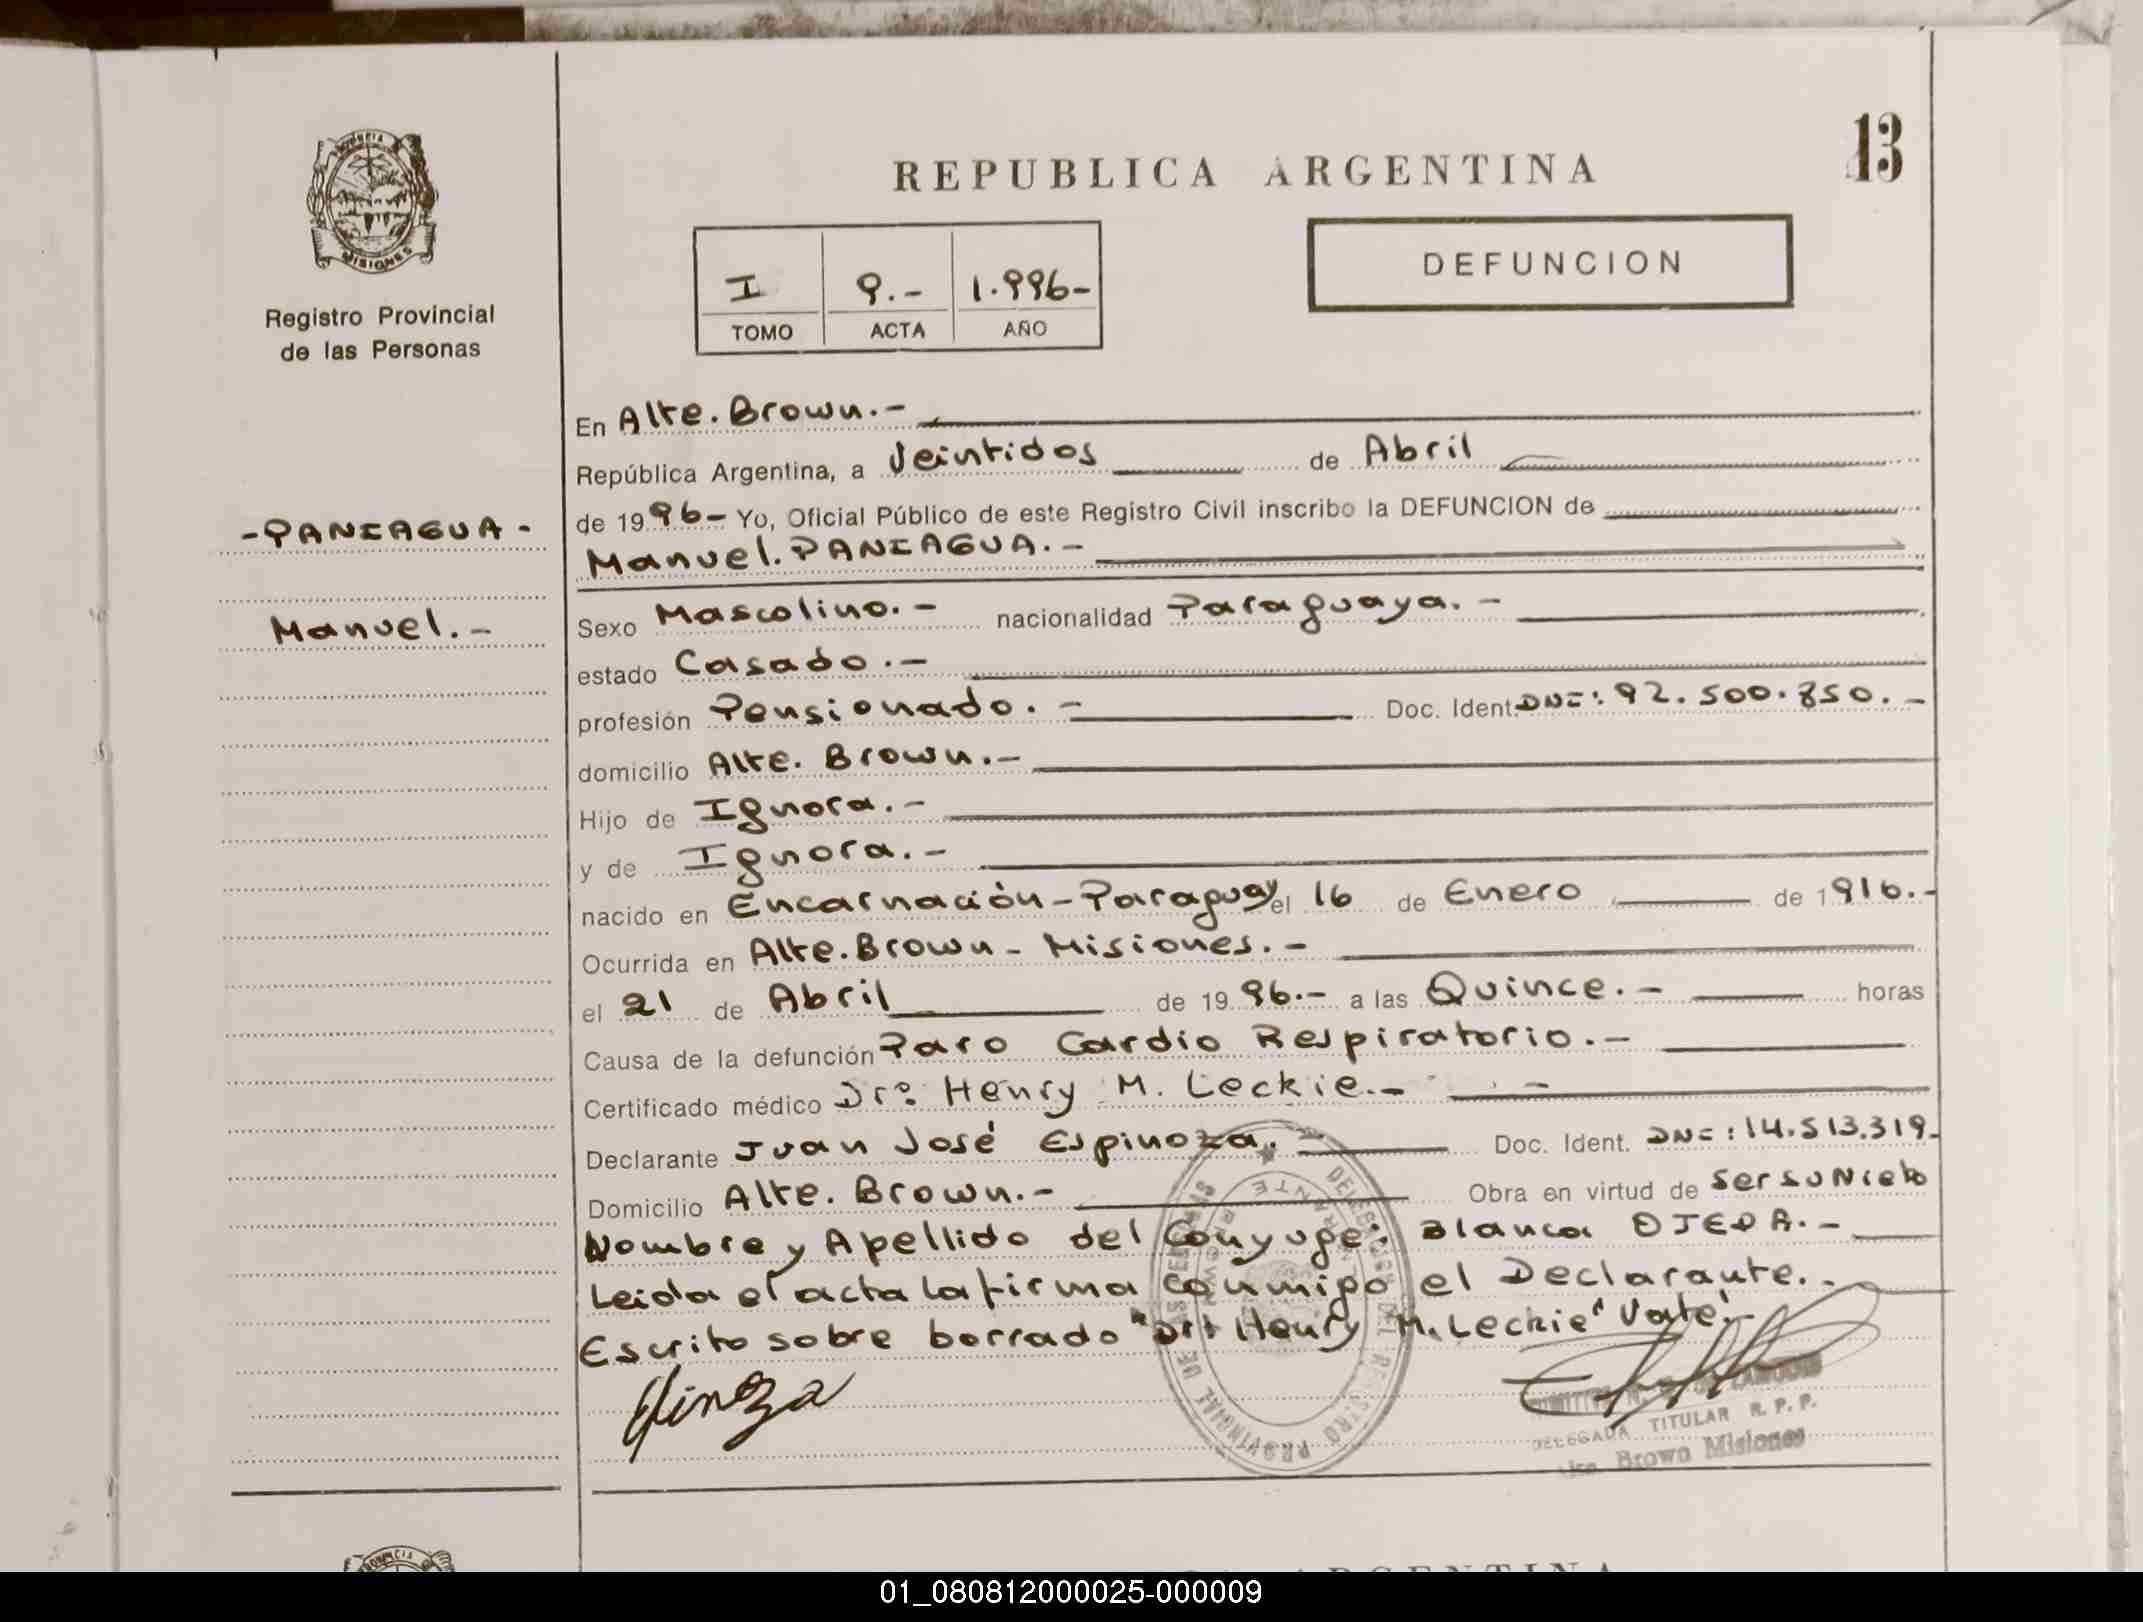 13
REPUBLICA ARGENTINA
PROVINCIA
MISIONES
Registro Provincial
de las Personas
I 9.- 1.996-
TOMO ACTA AÑO
DEFUNCION
En Alte. Brown.-
República Argentina, a Veintidos de Abril
de 1996- Yo, Oficial Público de este Registro Civil inscribo la DEFUNCION de
-PANIAGUA-
Manuel. PANIAGUA.-
Manuel.-
Sexo Mascolino.- nacionalidad Paraguaya.-
estado Casado.-
profesión Pensionado.- Doc. Ident. DNI: 92.500.850.-
domicilio Alte. Brown.-
Hijo de Ignora.-
y de Ignora.-
nacido en Encarnación-Paraguay el 16 de Enero de 1916.-
Ocurrida en Alte. Brown- Misiones.-
el 21 de Abril de 1996.- a las Quince.- horas
Causa de la defunción Paro Cardio Respiratorio.-
Certificado médico Dro: Henry M. Leckie.-
Declarante Juan José Espinoza.- Doc. Ident. DNI: 14.513.319-
Domicilio Alte. Brown.- Obra en virtud de ser su Nieto
Nombre y Apellido del Conyuge: Blanca OJEDA.-
Leida el acta la firma conmigo el Declarante.-
Escrito sobre borrado "Dr: Henry M. Leckie" Vale!-
DELEGADA TITULAR R. P. P.
Brown Misiones
REGISTRO PROVINCIAL DE LAS PERSONAS
ARGENTINA
01_080812000025-000009